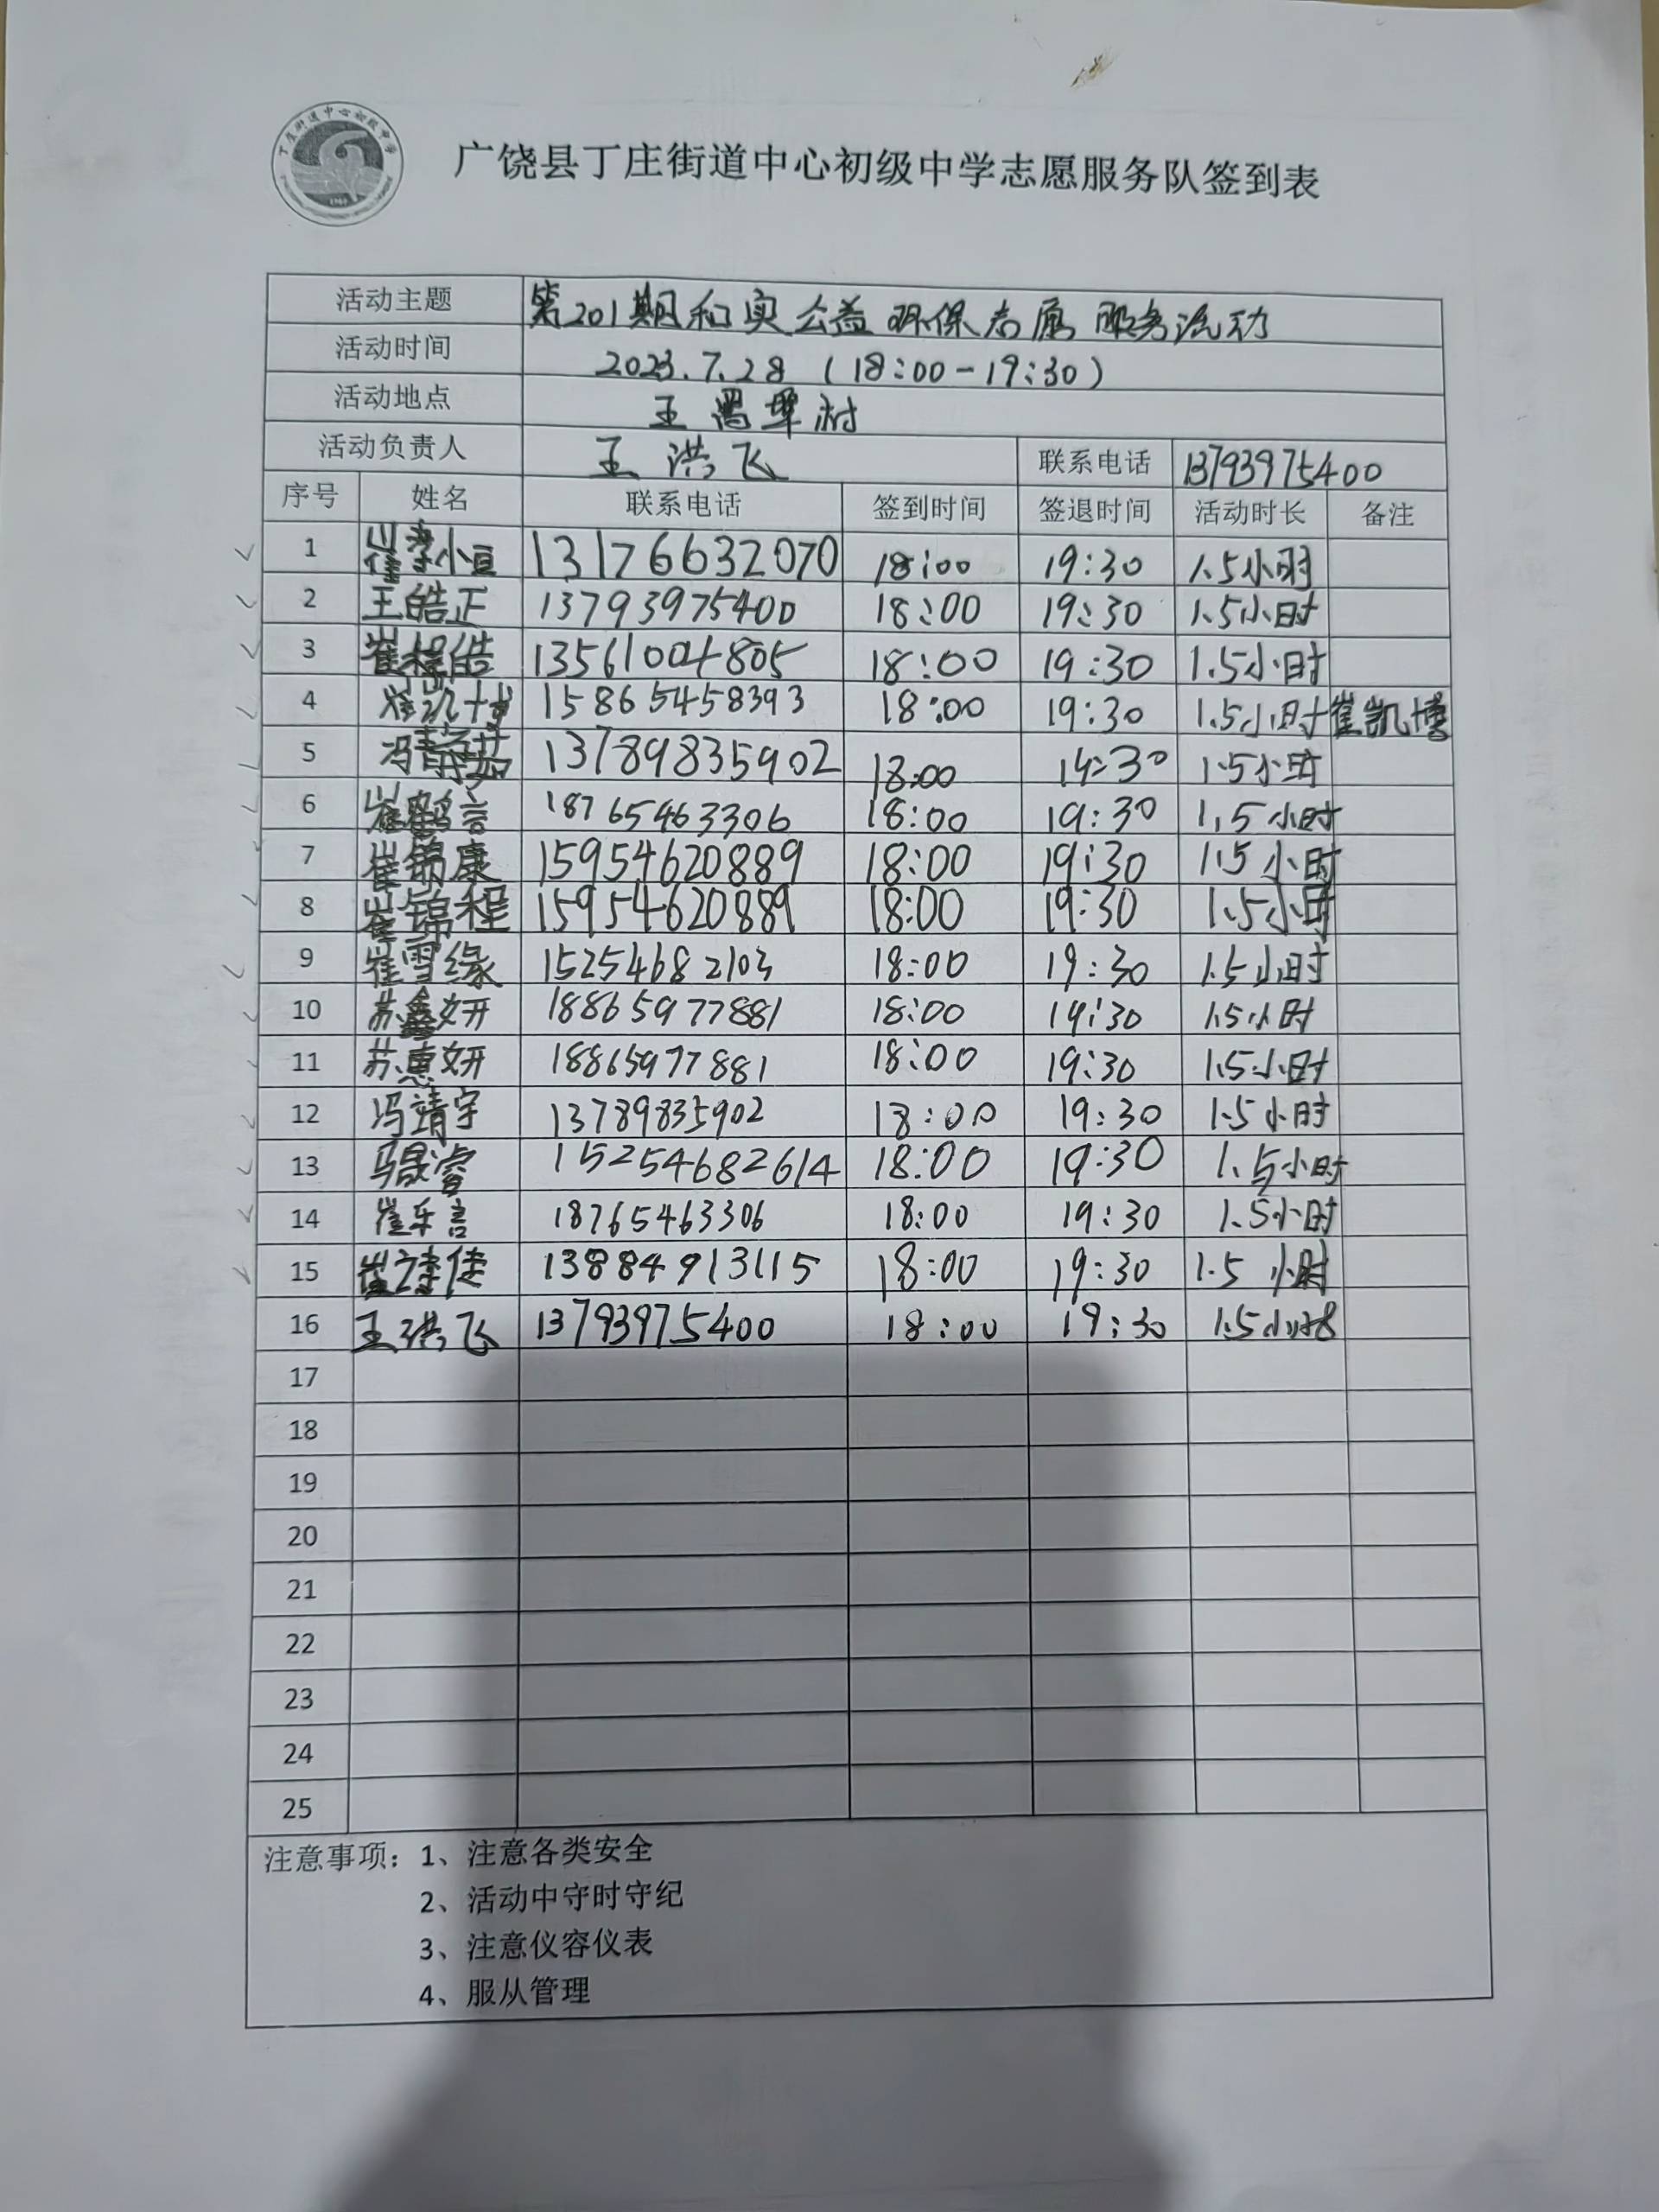 广饶县丁庄街道中心初级中学志愿服务队签到表
活动主题 第201期和实公益环保志愿服务活动
活动时间 2023.7.28 (18:00-19:30)
活动地点 王 村
活动负责人 王洪飞 联系电话 13793975400
序号 姓名 联系电话 签到时间 签退时间 活动时长 备注
1 崔李小恒 13176632070 18:00 19:30 1.5小时
2 王皓正 13793975400 18:00 19:30 1.5小时
3 崔程皓 13561004805 18:00 19:30 1.5小时
4 崔凯博 15865458393 18:00 19:30 1.5小时 崔凯博
5 冯静茹 13789835902 18:00 19:30 1.5小时
6 崔 言 18765463306 18:00 19:30 1.5小时
7 崔锦康 15954620889 18:00 19:30 1.5小时
8 崔锦程 15954620889 18:00 19:30 1.5小时
9 崔雪缘 15254682103 18:00 19:30 1.5小时
10 苏鑫妍 18865977881 18:00 19:30 1.5小时
11 苏惠妍 18865977881 18:00 19:30 1.5小时
12 冯靖宇 13789835902 18:00 19:30 1.5小时
13 马晟睿 15254682614 18:00 19:30 1.5小时
14 崔乐言 18765463306 18:00 19:30 1.5小时
15 崔 佳 13884913115 18:00 19:30 1.5小时
16 王洪飞 13793975400 18:00 19:30 1.5小时
17
18
19
20
21
22
23
24
25
注意事项：1、注意各类安全
2、活动中守时守纪
3、注意仪容仪表
4、服从管理